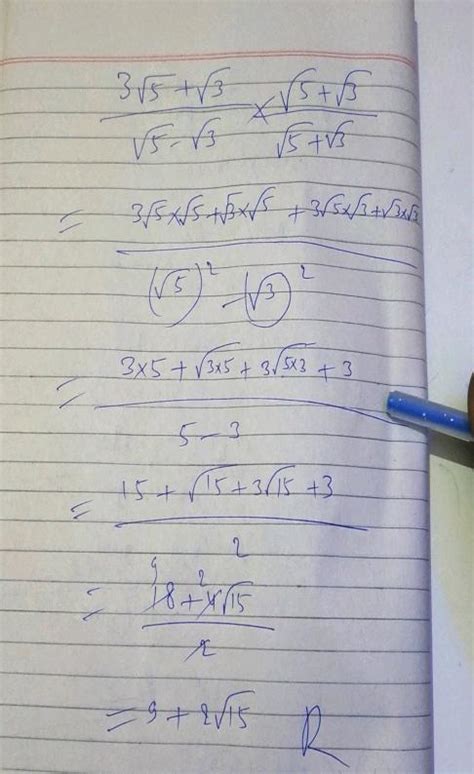 3√5 + √3 / √5 - √3 × √5 + √3 / √5 + √3
= 3√5×√5 + √3×√5 + 3√5×√3 + √3×√3 / (√5)² - (√3)²
= 3×5 + √3×5 + 3√5×3 + 3 / 5 - 3
= 15 + √15 + 3√15 + 3 / 2
= 18 + 4√15 / 2
9 2
= 9 + 2√15